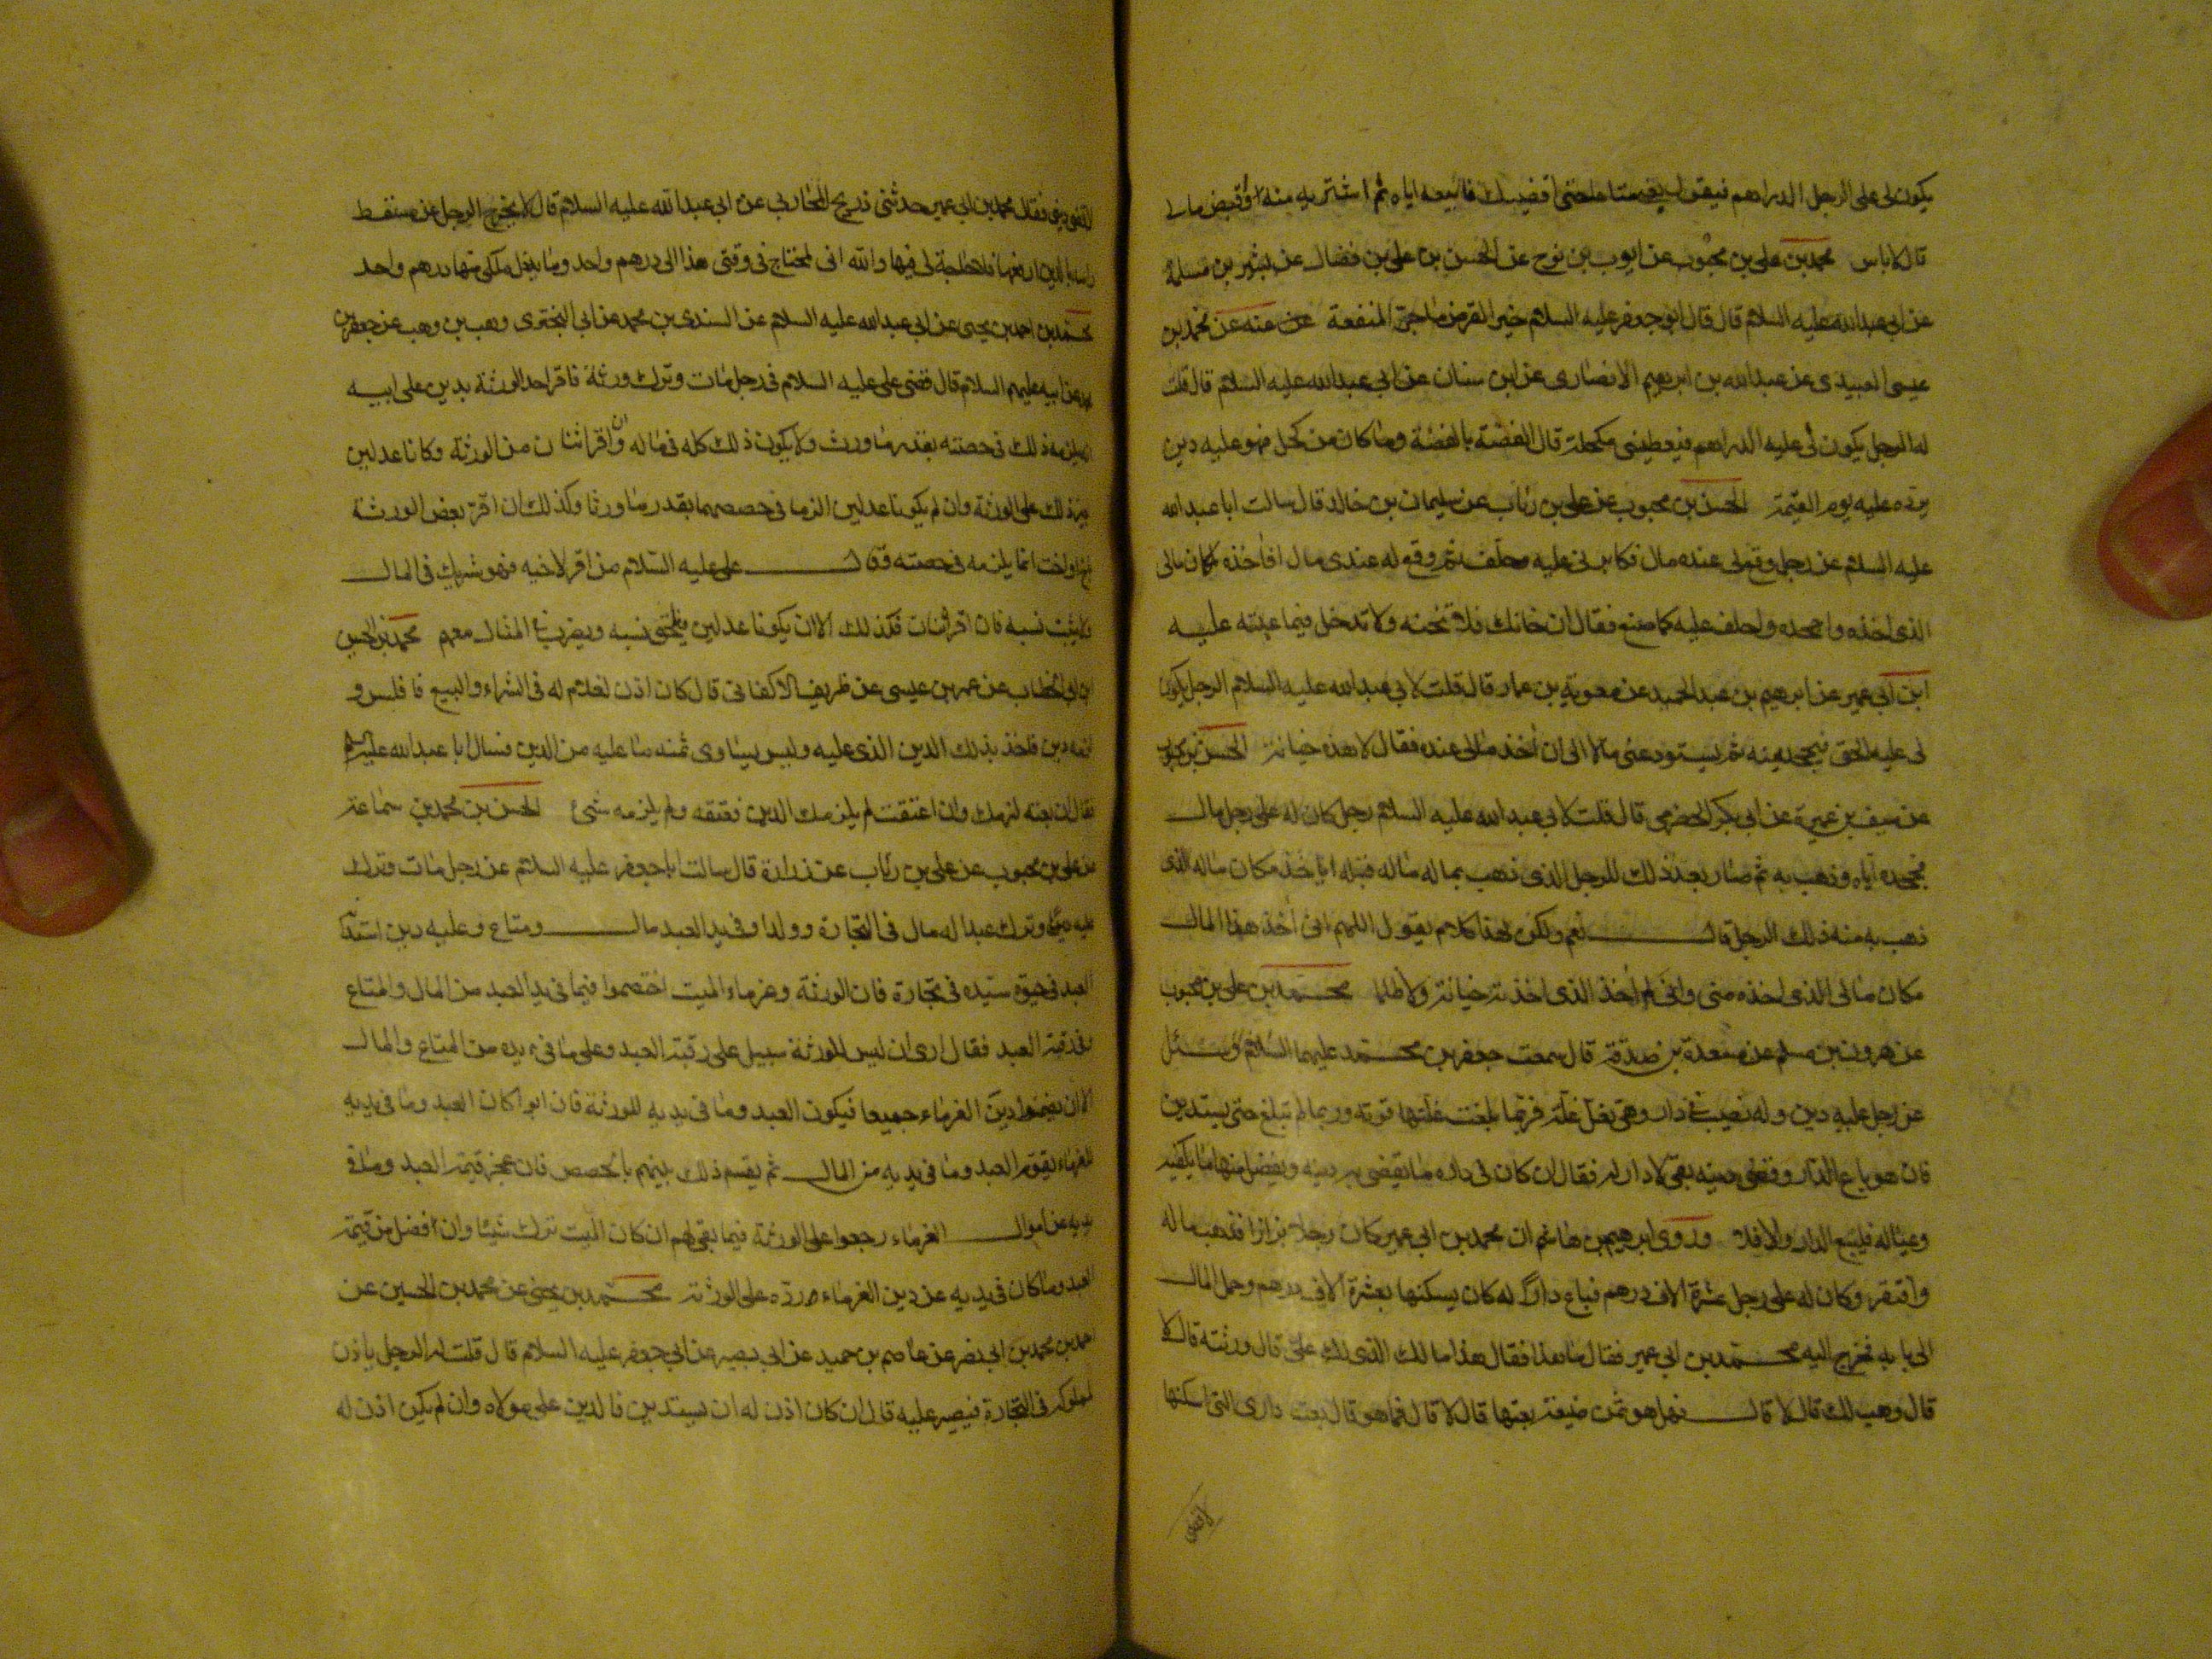 يكون لى على الرجل الدراهم فيقول بعنى متاعا حتى اقضيك فابيعه اياه ثم اشتريه منه واقبض مالى
قال لا باس محمد بن على بن محبوب عن ايوب بن نوح عن الحسن بن على بن فضال عن بشير بن مسلمة
عن ابى عبد الله عليه السلام قال قال ابو جعفر عليه السلام خير القرض ما جر المنفعة عنه عن محمد بن
عيسى العبيدى عن عبد الله بن ابرهيم الانصارى عن ابن سنان عن ابى عبد الله عليه السلام قال قلت
له الرجل يكون لى عليه الدراهم فيعطينى مكحلة قال الفضة بالفضة وما كان من كحل فهو عليه دين
يرده عليه يوم القيمة الحسن بن محبوب عن على بن رئاب عن سليمان بن خالد قال سالت ابا عبد الله
عليه السلام عن رجل وقع لى عنده مال فكابرنى عليه وحلف ثم وقع له عندى مال افاخذه مكان مالى
الذى اخذه واجحده واحلف عليه كما صنع فقال ان خانك فلا تخنه ولا تدخل فيما عبته عليه
ابن ابى عمير عن ابرهيم بن عبد الحميد عن معوية بن عمار قال قلت لابى عبد الله عليه السلام الرجل يكون
لى عليه الحق فيجحدنيه ثم يستودعنى مالا الى ان اخذ مالى عنده فقال لا هذه خيانة الحسن بن محبوب
عن سيف بن عميرة عن ابى بكر الحضرمى قال قلت لابى عبد الله عليه السلام رجل كان له على رجل مال
فجحده اياه وذهب به ثم صار بعد ذلك للرجل الذى ذهب بماله ماله قبله اياخذ مكان ماله الذى
ذهب به منه ذلك الرجل قال نعم ولكن لهذا كلام يقول اللهم انى اخذ هذا المال
مكان مالى الذى اخذه منى وانى لم اخذ الذى اخذته خيانة ولا ظلما محمد بن على بن محبوب
عن هرون بن مسلم عن مسعدة بن صدقة قال سمعت جعفر بن محمد عليهما السلام وسئل
عن رجل عليه دين وله نصيب فى دار وهى تغل غلة فربما بلغت غلتها قوته وربما لم تبلغ حتى يستدين
فان هو باع الدار وقضى دينه بقى لا دار له فقال ان كان فى داره ما يقضى به دينه ويفضل منها ما يكفيه
وعياله فليبع الدار والا فلا وروى ابرهيم بن هاشم ان محمد بن ابى عمير كان رجلا بزازا فذهب ماله
وافتقر وكان له على رجل عشرة الاف درهم فباع دارا له كان يسكنها بعشرة الاف درهم وحمل المال
الى بابه فخرج اليه محمد بن ابى عمير فقال ما هذا فقال هذا مالك الذى لك على قال ورثته قال لا
قال وهب لك قال لا قال فهل هو ثمن ضيعة بعتها قال لا قال فما هو قال بعت دارى التى اسكنها
فقال محمد بن ابى عمير حدثنى ذريح المحاربى عن ابى عبد الله عليه السلام قال لا يخرج الرجل عن مسقط
راسه بالدين ارفعها فلا حاجة لى فيها والله انى لمحتاج فى وقتى هذا الى درهم واحد وما يدخل ملكى منها درهم واحد
محمد بن احمد بن يحيى عن ابى عبد الله عليه السلام عن السندى بن محمد عن ابى البخترى وهب بن وهب عن جعفر بن
محمد عن ابيه عليهم السلام قال قضى على عليه السلام فى رجل مات وترك ورثة فاقر احد الورثة بدين على ابيه
انه يلزمه ذلك فى حصته بقدر ما ورث ولا يكون ذلك كله فى ماله وان اقر اثنان من الورثة وكانا عدلين
اجيز ذلك على الورثة وان لم يكونا عدلين الزما فى حصصهما بقدر ما ورثا وكذلك ان اقر بعض الورثة
باخ او اخت انما يلزمه فى حصته وقال على عليه السلام من اقر لاخيه فهو شريك فى المال
ولا يثبت نسبه فان اقر اثنان فكذلك الا ان يكونا عدلين فيلحق نسبه ويضرب فى المال معهم محمد بن الحسين
بن ابى الخطاب عن عمر بن عيسى عن ظريف الاكفانى قال كان اذن لغلام له فى الشراء والبيع فافلس و
لزمه دين فاخذ بذلك الدين الذى عليه وليس يساوى ثمنه ما عليه من الدين فسال ابا عبد الله عليه السلام
فقال ان بعته لزمك وان اعتقت لم يلزمك الدين فعتقه ولم يلزمه شئ الحسن بن محمد بن سماعة
عن على بن محبوب عن على بن رئاب عن زرارة قال سالت ابا جعفر عليه السلام عن رجل مات وترك
عليه دينا وترك عبدا له مال فى التجارة وولدا وفى يد العبد مال ومتاع وعليه دين استدانه
العبد فى حيوة سيده فى تجارة فان الورثة وغرماء الميت اختصموا فيما فى يد العبد من المال والمتاع
وفى رقبة العبد فقال ارى ان ليس للورثة سبيل على رقبة العبد وعلى ما فى يده من المتاع والمال
الا ان يضمنوا دين الغرماء جميعا فيكون العبد وما فى يديه للورثة فان ابوا كان العبد وما فى يديه
للغرماء يقوم العبد وما فى يديه من المال ثم يقسم ذلك بينهم بالحصص فان عجز قيمة العبد وما فى
يديه عن اموال الغرماء رجعوا على الورثة فيما بقى لهم ان كان الميت ترك شيئا وان افضل من قيمة
العبد وما كان فى يديه عن دين الغرماء رده على الورثة محمد بن يحيى عن محمد بن الحسين عن
احمد بن محمد بن ابى نصر عن عاصم بن حميد عن ابى بصير عن ابى جعفر عليه السلام قال قلت له الرجل ياذن
لمملوكه فى التجارة فيصير عليه قال ان كان اذن له ان يستدين فالدين على مولاه وان لم يكن اذن له